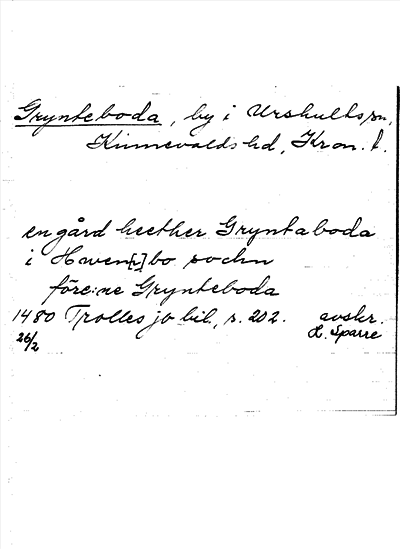 Grynteboda, by i Urshults sn,
Kinnevalds hd, Kron. l.
en gård heether Gryntaboda
i Hwen[r]bo sochn
före:ne Grynteboda
1480 Trolles jo bil, s. 202. avskr.
26/2 H. Sparre